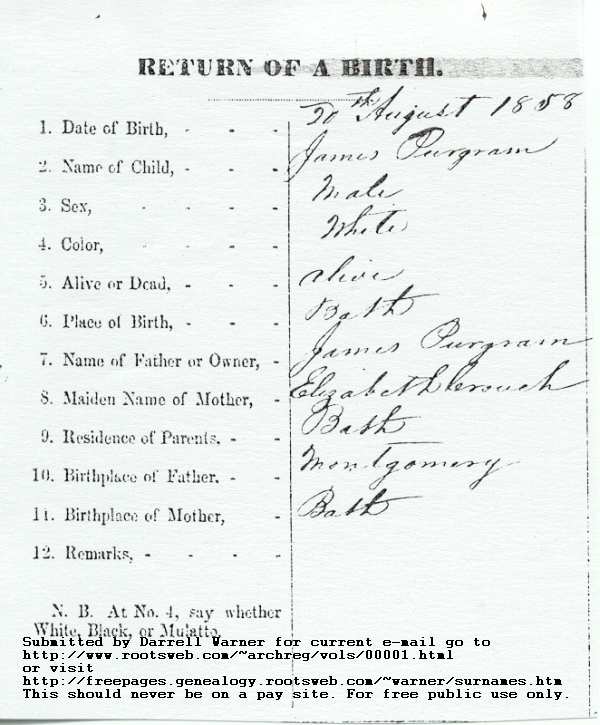 RETURN OF A BIRTH.
1. Date of Birth, - - - 20th August 1858
2. Name of Child, - - - James Purgram
3. Sex, - - - - Male
4. Color, - - - - White
5. Alive or Dead, - - - alive
6. Place of Birth, - - - Bath
7. Name of Father or Owner, - James Purgram
8. Maiden Name of Mother, - Elizabeth Crouch
9. Residence of Parents, - - Bath
10. Birthplace of Father, - - Montgomery
11. Birthplace of Mother, - Bath
12. Remarks, - - - -
N. B. At No. 4, say whether
White, Black, or Mulatto.
Submitted by Darrell Warner for current e-mail go to
http://www.rootsweb.com/~archreg/vols/00001.html
or visit
http://freepages.genealogy.rootsweb.com/~warner/surnames.htm
This should never be on a pay site. For free public use only.